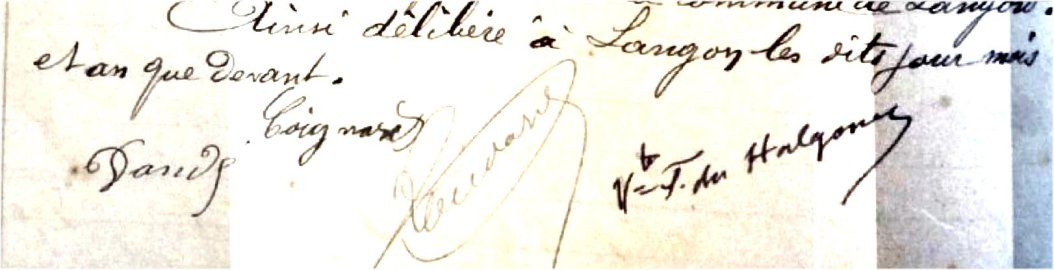 commune de Langon.
Ainsi délibéré à Langon les dits jour mois
et an que devant.
Coignard
Vte F. du Halgouet